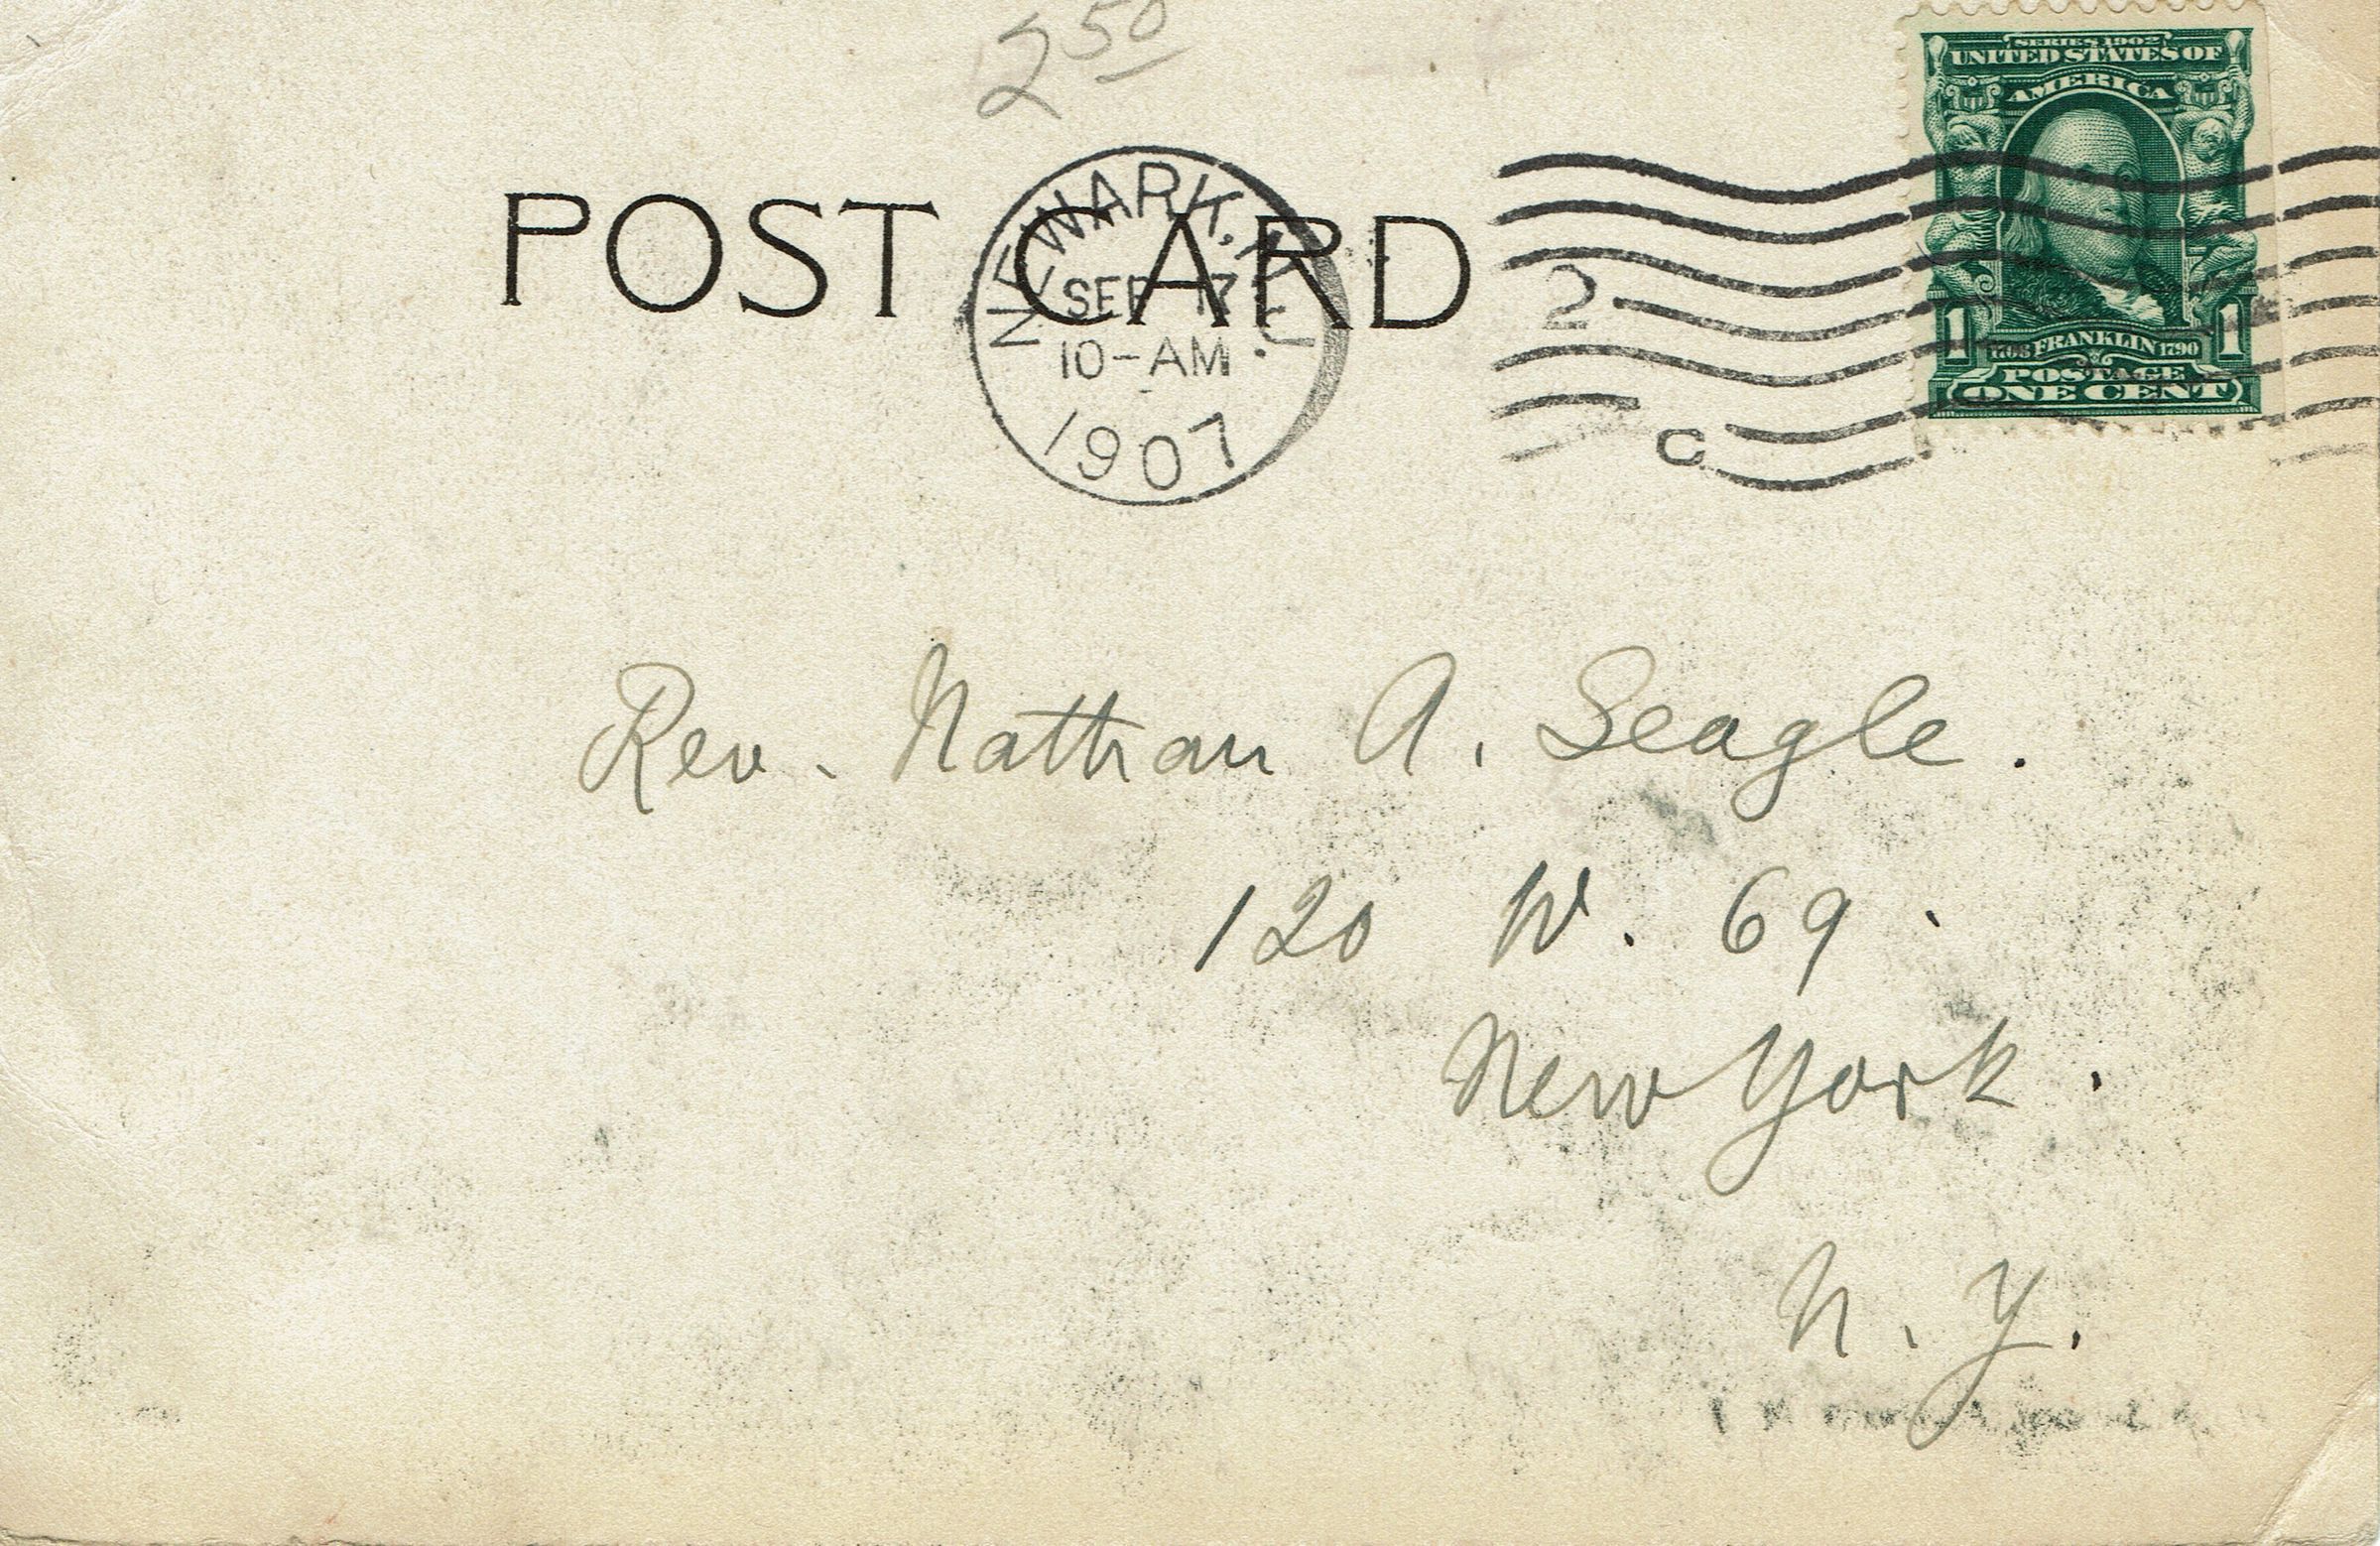 2 50
SERIES 1902
UNITED STATES OF
AMERICA
POST CARD
NEWARK, N.J.
SEP 17
10-AM
1907
2
C
1 1703 FRANKLIN 1790 1
POSTAGE
ONE CENT
Rev. Nathan A. Seagle.
120 W. 69.
New York.
N. Y.